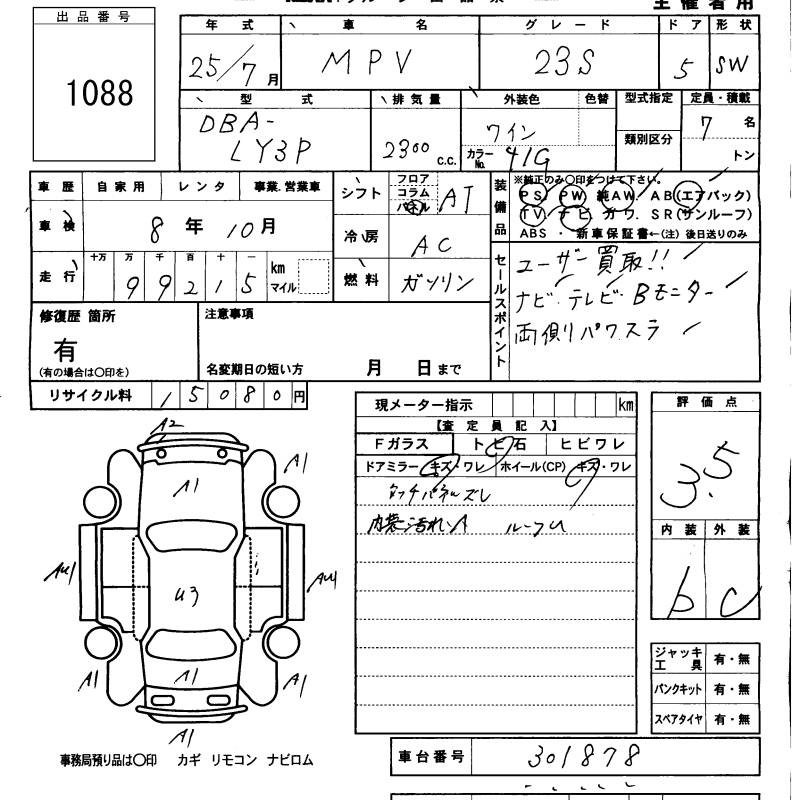 主催者用
出品番号
1088
年式 車名 グレード ドア 形状
25/7月 MPV 23S 5 SW
型式 排気量 外装色 色替 型式指定 定員・積載
DBA-LY3P 2300 c.c. ワイン 類別区分 7名
カラーNo. 41G トン
車歴 自家用 レンタ 事業.営業車
車検 8年10月
走行 十万 万 千 百 十 一
99215 km マイル
シフト フロア コラム パネル AT
冷房 AC
燃料 ガソリン
装備品 ※純正のみ〇印をつけて下さい。
PS PW 純AW. AB(エアバック)
TV ナビ カワ. SR(サンルーフ)
ABS ・ 新車保証書←(注) 後日送りのみ
セールスポイント
ユーザー買取!!
ナビ・テレビ・Bモニター
両側パワスラ
修復歴 箇所
有
(有の場合は〇印を)
注意事項
名変期日の短い方 月 日まで
リサイクル料 15080円
現メーター指示 km
【査定員記入】
Fガラス トビ石 ヒビワレ
ドアミラー キズ・ワレ ホイール(CP) キズ・ワレ
タッチパネルズレ
内装汚れシA ルーフU
評価点
3.5
内装 外装
b c
ジャッキ工具 有・無
パンクキット 有・無
スペアタイヤ 有・無
A2
A1
A1
AU1
U3
AU1
A1
A1
A1
A1
事務局預り品は〇印 カギ リモコン ナビロム
車台番号 301878